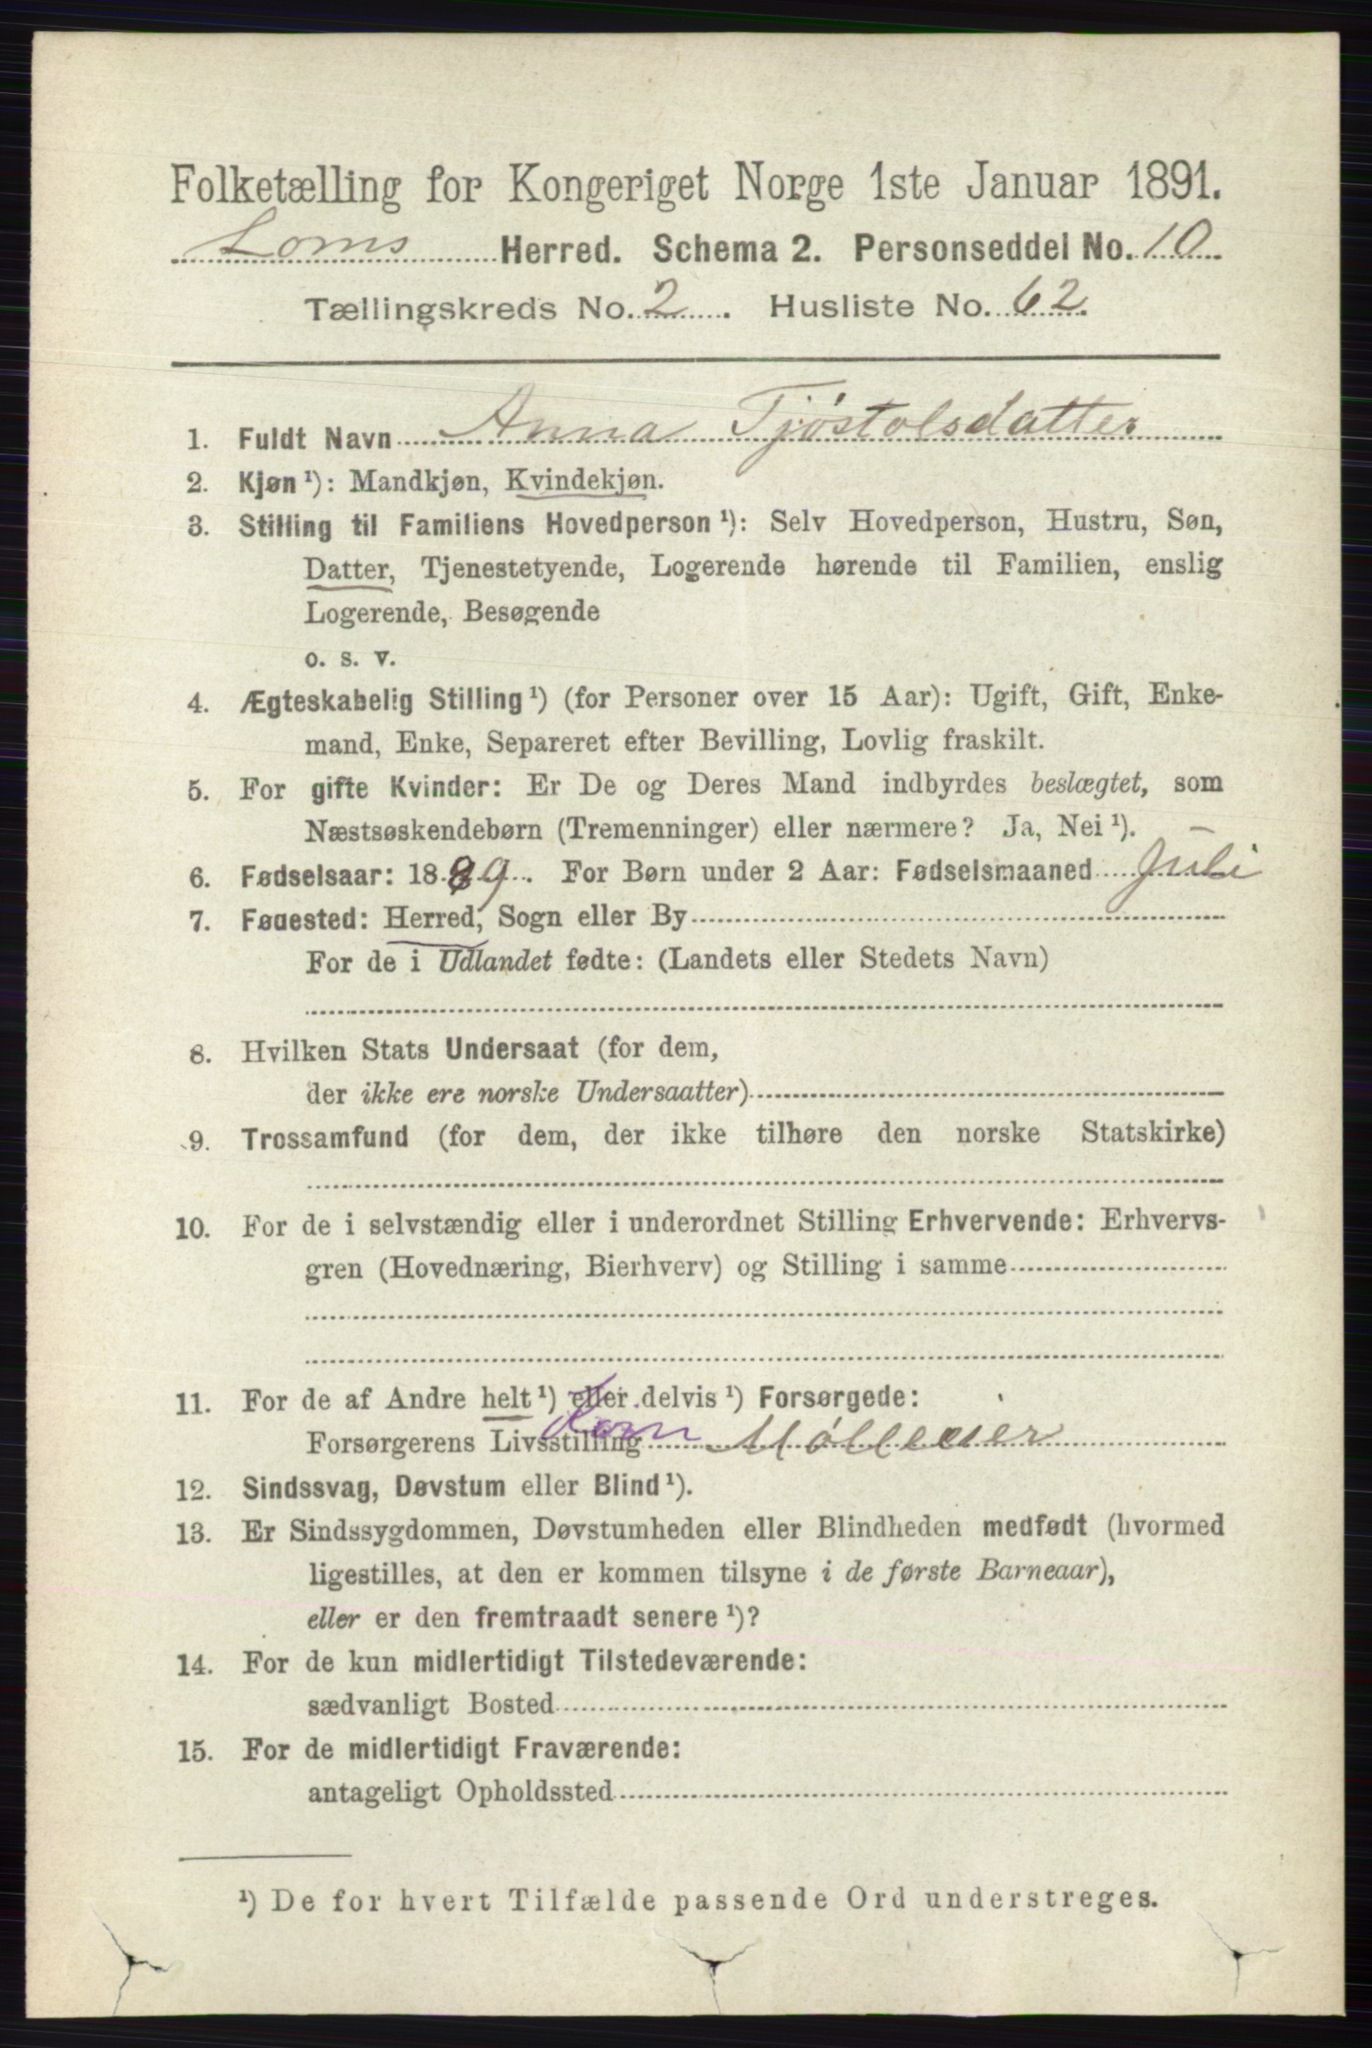 Folketælling for Kongeriget Norge 1ste Januar 1891.
Loms Herred. Schema 2. Personseddel No. 10
Tællingskreds No. 2. Husliste No. 62.
1. Fuldt Navn Anna Tjøstolsdatter
2. Kjøn¹): Mandkjøn, Kvindekjøn.
3. Stilling til Familiens Hovedperson¹): Selv Hovedperson, Hustru, Søn,
Datter, Tjenestetyende, Logerende hørende til Familien, enslig
Logerende, Besøgende
o. s. v.
4. Ægteskabelig Stilling¹) (for Personer over 15 Aar): Ugift, Gift, Enke-
mand, Enke, Separeret efter Bevilling, Lovlig fraskilt.
5. For gifte Kvinder: Er De og Deres Mand indbyrdes beslægtet, som
Næstsøskendebørn (Tremenninger) eller nærmere? Ja, Nei¹).
6. Fødselsaar: 1889. For Børn under 2 Aar: Fødselsmaaned Juli
7. Fødested: Herred, Sogn eller By
For de i Udlandet fødte: (Landets eller Stedets Navn)
8. Hvilken Stats Undersaat (for dem,
der ikke ere norske Undersaatter)
9. Trossamfund (for dem, der ikke tilhøre den norske Statskirke)
10. For de i selvstændig eller i underordnet Stilling Erhvervende: Erhvervs-
gren (Hovednæring, Bierhverv) og Stilling i samme
11. For de af Andre helt¹) eller delvis¹) Forsørgede:
Forsørgerens Livsstilling Korn Mølleeier
12. Sindssvag, Døvstum eller Blind¹).
13. Er Sindssygdommen, Døvstumheden eller Blindheden medfødt (hvormed
ligestilles, at den er kommen tilsyne i de første Barneaar),
eller er den fremtraadt senere¹)?
14. For de kun midlertidigt Tilstedeværende:
sædvanligt Bosted
15. For de midlertidigt Fraværende:
antageligt Opholdssted
¹) De for hvert Tilfælde passende Ord understreges.